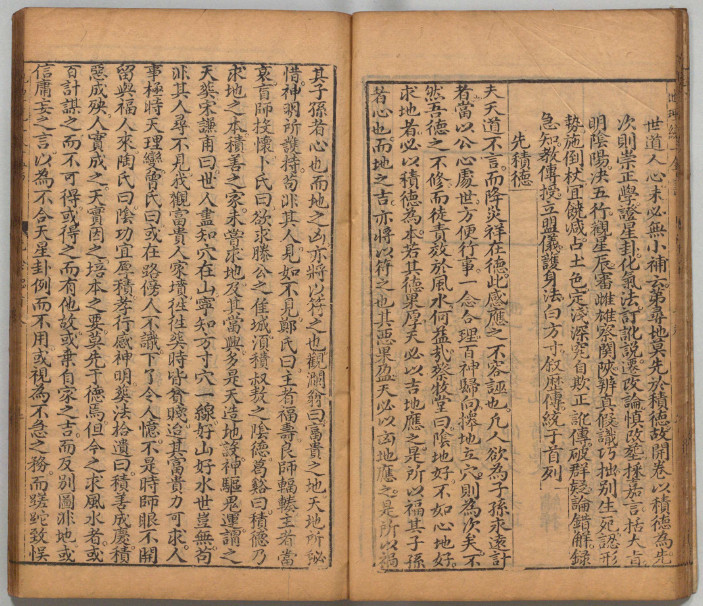 世道人心未必無小補云第尋地莫先於積德故開卷以積德為先
次則崇正學證星卦化氣法訂訛説遷改論慎改塟擇嘉言括大㫖
明陰陽決五行觀星辰審雌雄察關陜辨真假識巧拙别生死認形
勢施倒杖宜饒减占土色定淺深究自欺正訛傳破群疑論錯解録
急知教傳授立盟儀護身法白方寸叙歴傳統于首列
先積德
夫天道不言而降災祥在德此感應之不容誣也凡人欲為子孫求遠計
者當以公心處世方便行事一念合理百神歸向擇地立穴則為次矣不
然吾德之不修而徒責效於風水何益哉發微堂曰陰地好不如心地好
求地者必以積德為本若其德果厚天必以吉地應之是所以福其子孫
者心也而地之吉亦將以符之也其惡果盈天必以凶地應之是所以禍
其子孫者心也而地之凶亦將以符之也觀瀾翁曰富貴之地天地所秘
惜神明所護持苟非其人見如不見鄭氏曰主者福壽良師輻輳主者當
衰盲師投懷卜氏曰欲求滕公之佳城須積叔敖之陰德葛谿曰積德乃
求地之本積善之家未嘗求地及其當興多是天造地設神驅鬼運謂之
天塟宋謙甫曰世人盡知穴在山寧知方寸穴一線好山好水世豈無苟
非其人尋不見我觀富貴人家墳徃徃塟時皆貧賤迨其富貴力可求人
事極時天理變曾氏曰或在路傍人不識下了令人憶不是時師眼不開
留與福人來陶氏曰陰功宜厚積孝行感神明塟法拾遺曰積善成慶積
惡成殃人實成之天實因之培本之要莫先于德焉但今之求風水者或
百計謀之而不可得或得之而有他故或棄自家之吉而反别圖非地或
信庸妄之言以為不合天星卦例而不用或視為不急之務而蹉跎致悞